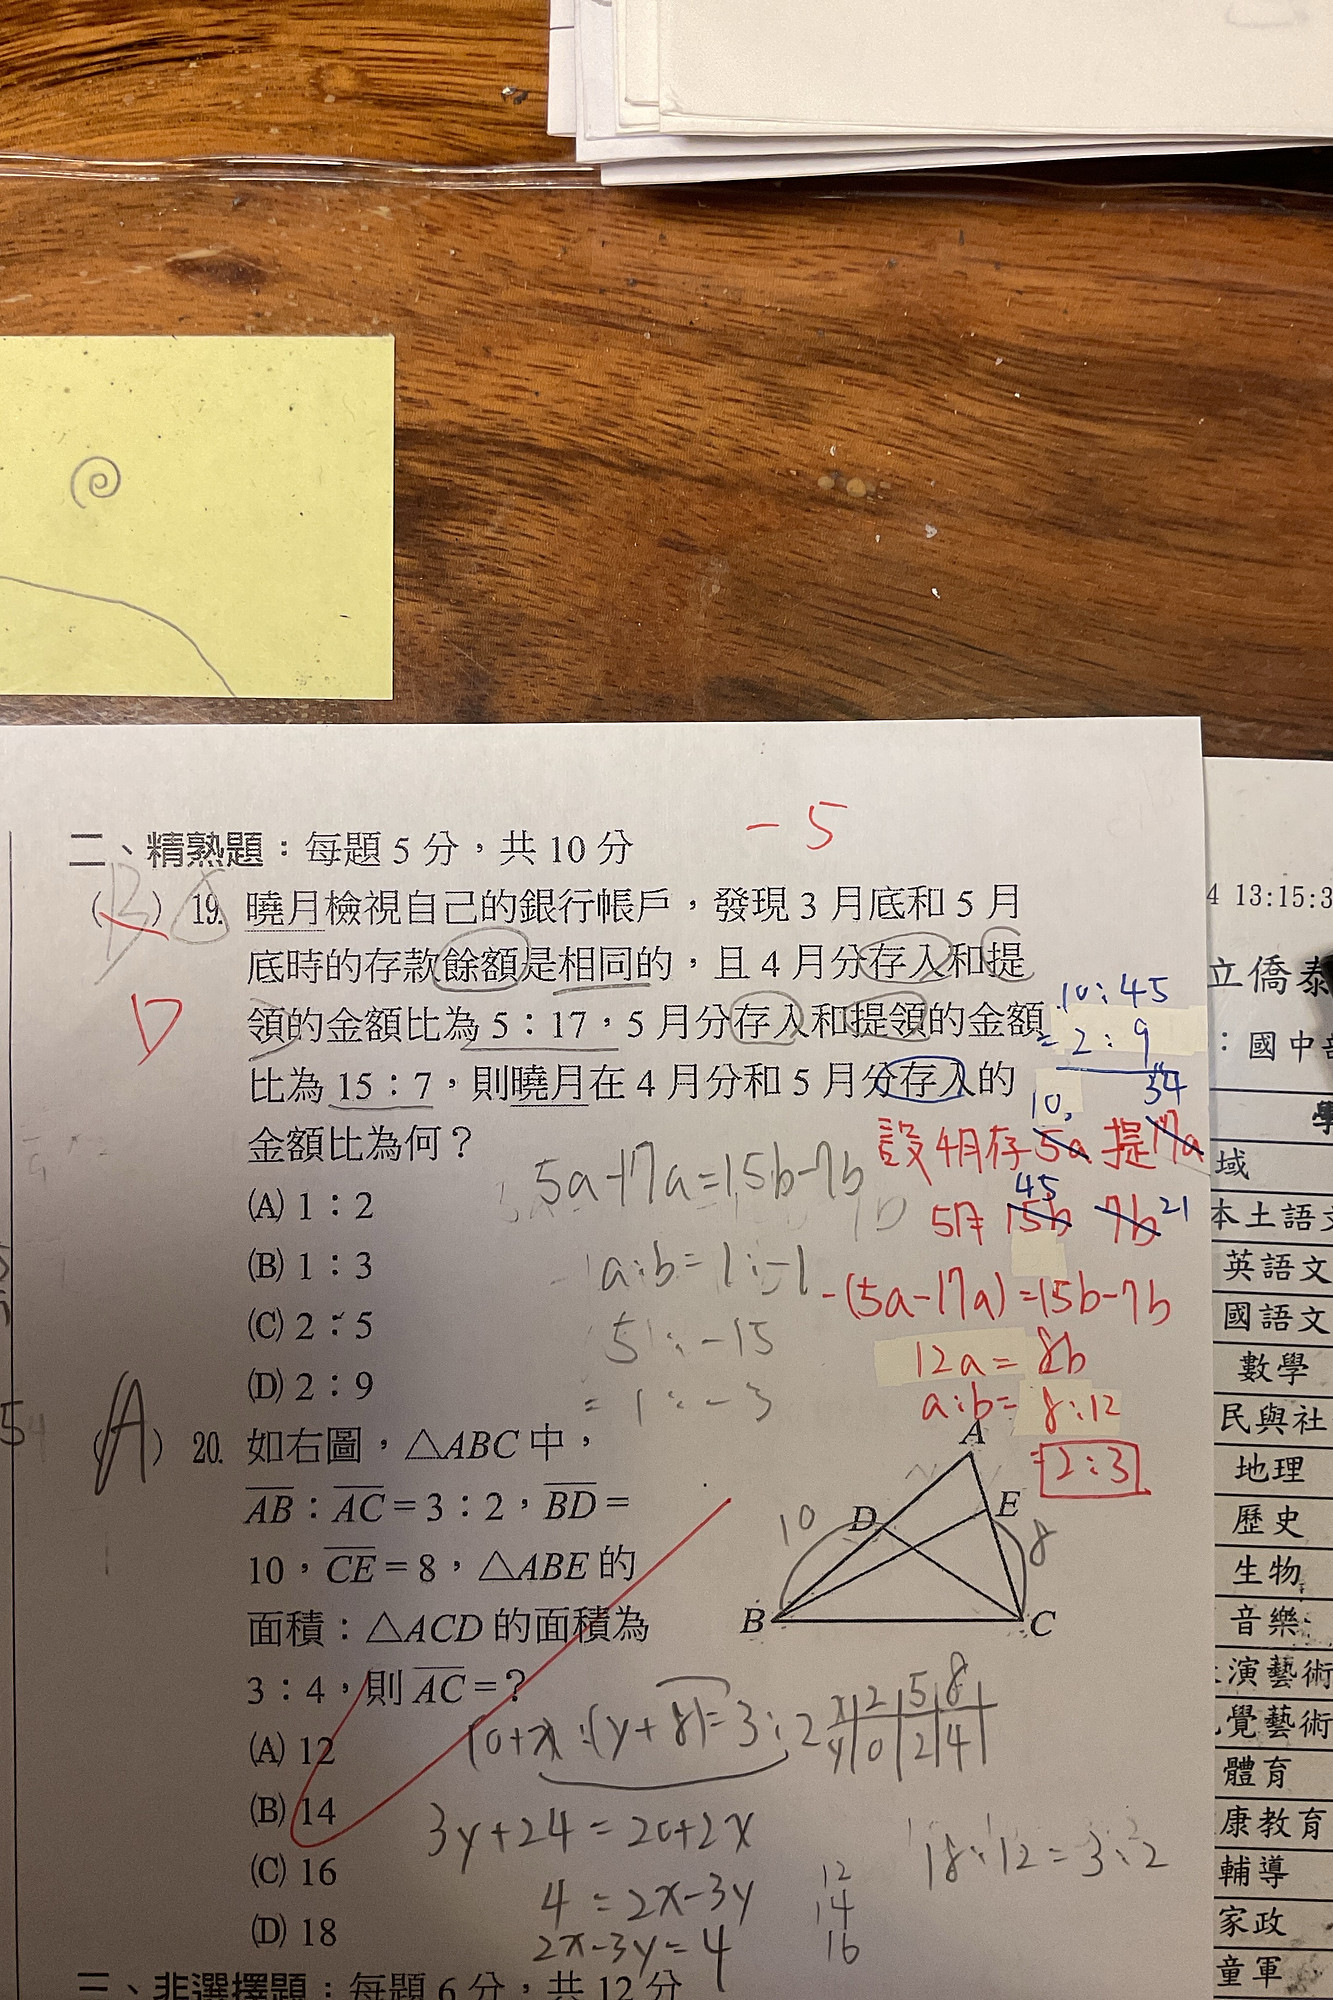 -5
二、精熟題：每題 5 分，共 10 分
19. 曉月檢視自己的銀行帳戶，發現 3 月底和 5 月
底時的存款餘額是相同的，且 4 月分存入和提
領的金額比為 5：17，5 月分存入和提領的金額
比為 15：7，則曉月在 4 月分和 5 月分存入的
金額比為何？
(A) 1：2
(B) 1：3
(C) 2：5
(D) 2：9
D
10:45
= 2:9
10, 34
設4月存5a 提17a
45
5月 15b 7b 21
-(5a-17a)=15b-7b
12a=8b
a:b=8:12
=2:3
5a-17a=15b-7b
a:b=1:-1
5:-15
=1:-3
(A) 20. 如右圖，△ABC 中，
AB：AC=3：2，BD=
10，CE=8，△ABE 的
面積：△ACD 的面積為
3：4，則 AC=？
(A) 12
(B) 14
(C) 16
(D) 18
A
D
E
B
C
10
8
10+x:(y+8)=3:2
x 2 5 8
y 0 2 4
3y+24=20+2x
4=2x-3y
2x-3y=4
12
14
16
18:12=3:2
三、非選擇題：每題 6 分，共 12 分
4 13:15:3
立僑泰
：國中部
學
域
本土語文
英語文
國語文
數學
民與社
地理
歷史
生物
音樂
演藝術
覺藝術
體育
康教育
輔導
家政
童軍